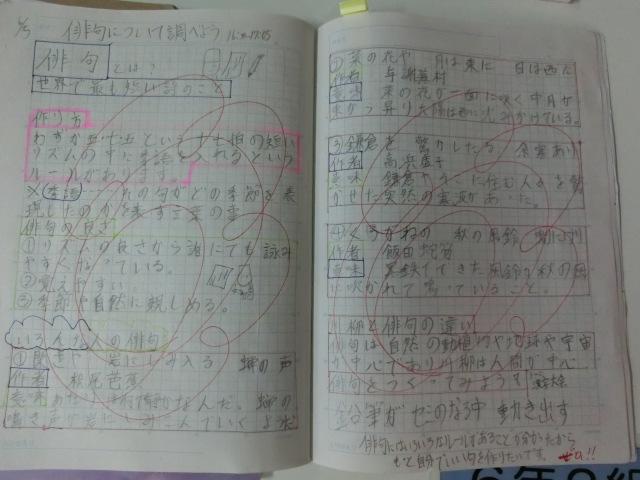 俳句について調べよう
俳句 とは?
世界で最も短い詩のこと
作り方
わずか五七五という十七拍の短い
リズムの中に季語を入れるという
ルールがあります。
※季語… の句がどの季節を表
現したのかを表す言葉の事
俳句の良さ
①リズムの良さから誰にでも詠み
やすくなっている。
②覚えやすい
③季節や自然に親しめる。
いろんな人の俳句
① や 岩にしみ入る 蝉の声
作者 芭蕉
意味 なんだ。蝉の
鳴き声が岩に
②菜の花や 月は東に 日は西に
作者 与謝蕪村
意味 菜の花が一面に咲く中月が
東から昇り太陽は西に しみかけている。
③鎌倉を 驚かしたる 余寒あり
作者 高浜虚子
意味 鎌倉 に住む人々を驚
かせた突然の寒波があった。
④くろがねの 秋の風鈴 鳴りにけり
作者 飯田蛇笏
意味 鉄でできた風鈴が秋の風
に吹かれて鳴っていること。
川柳と俳句の違い
俳句は自然の動植物や地球や宇宙
が中心であり川柳は人間が中心
俳句をつくってみよう
鉛筆が せのなる中 動き出す
俳句にはいろいろなルールがあることが分かったから
もっと自分でいい句を作りたいです。